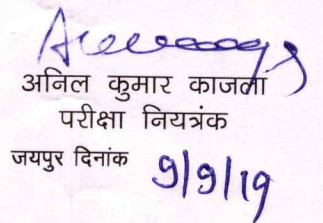 अनिल कुमार काजला
परीक्षा नियत्रंक
जयपुर दिनांक 9/9/19